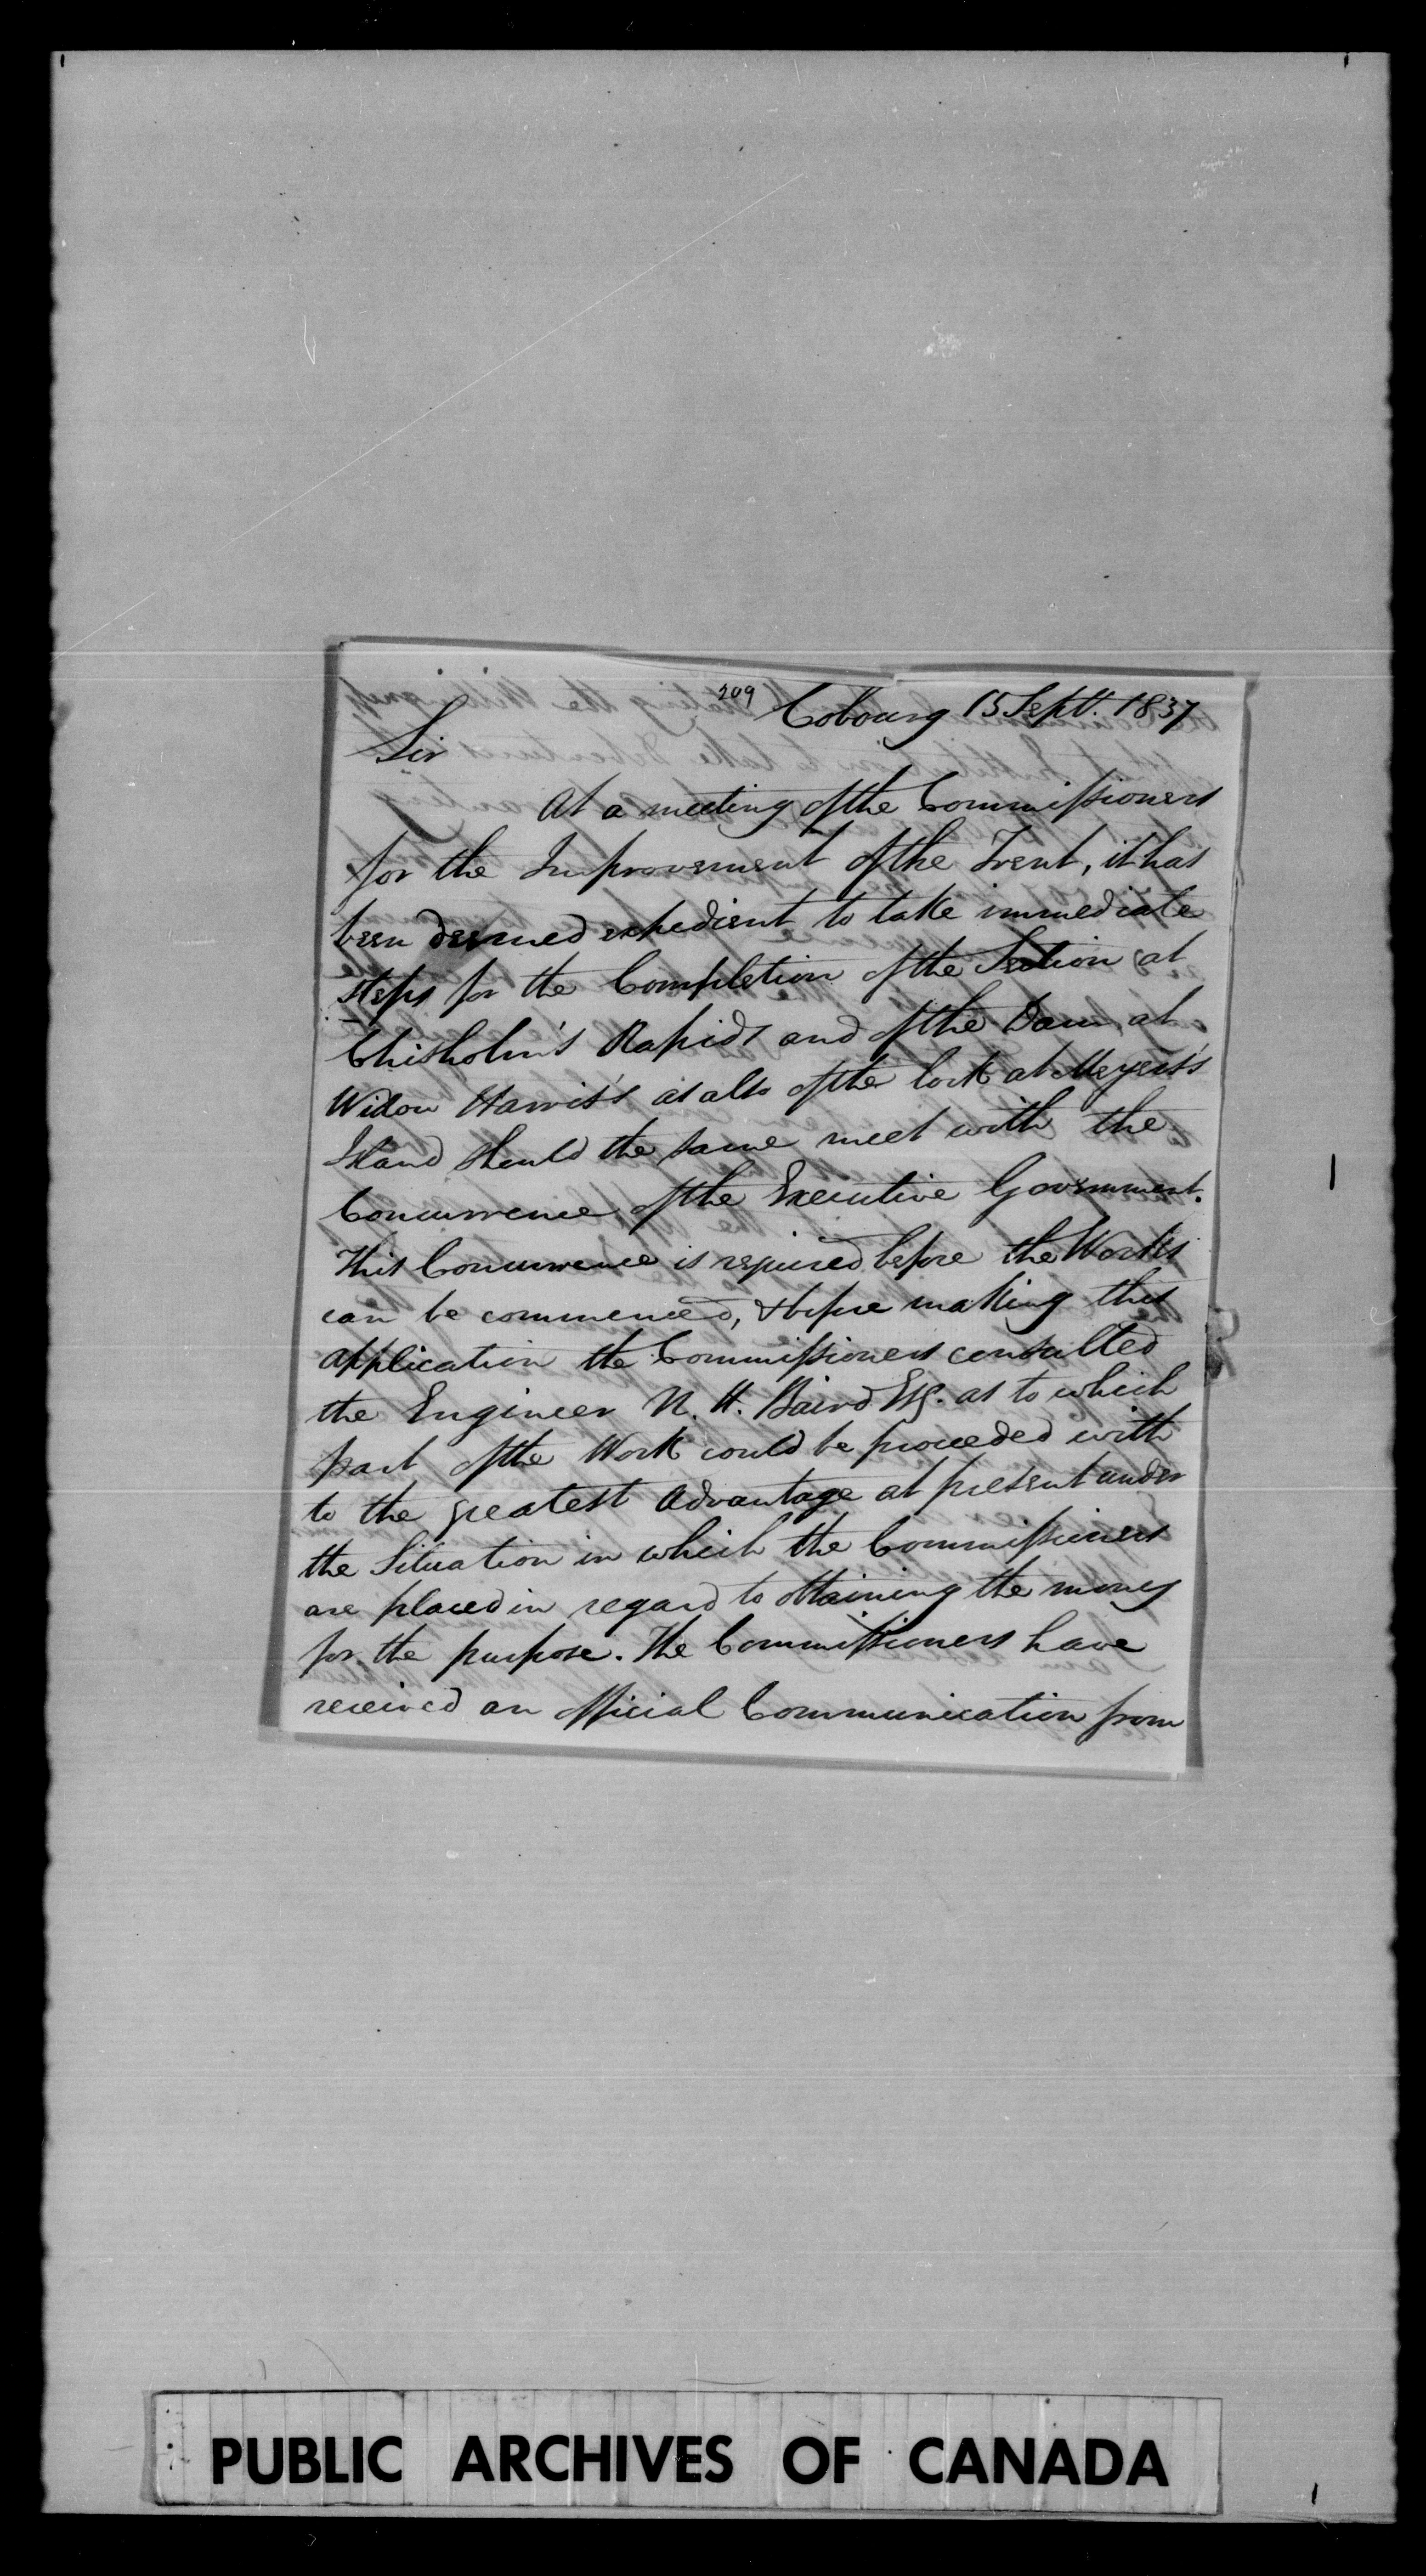 209
Cobourg 15 Sept. 1837
Sir
At a meeting of the Commissioners
for the Improvement of the Trent, it has
been deemed expedient to take immediate
steps for the Completion of the Section at
Chisholm's Rapids and of the Dam at
Widow Harris's as also of the lock at Meyers's
Island should the same meet with the
Concurrence of the Executive Government.
This Concurrence is required before the Works
can be commenced, & before making this
application the Commissioners consulted
the Engineer N. H. Baird Esq. as to which
part of the Work could be proceeded with
to the greatest advantage at present under
the Situation in which the Commissioners
are placed in regard to obtaining the money
for the purpose. The Commissioners have
received an official Communication from
PUBLIC ARCHIVES OF CANADA